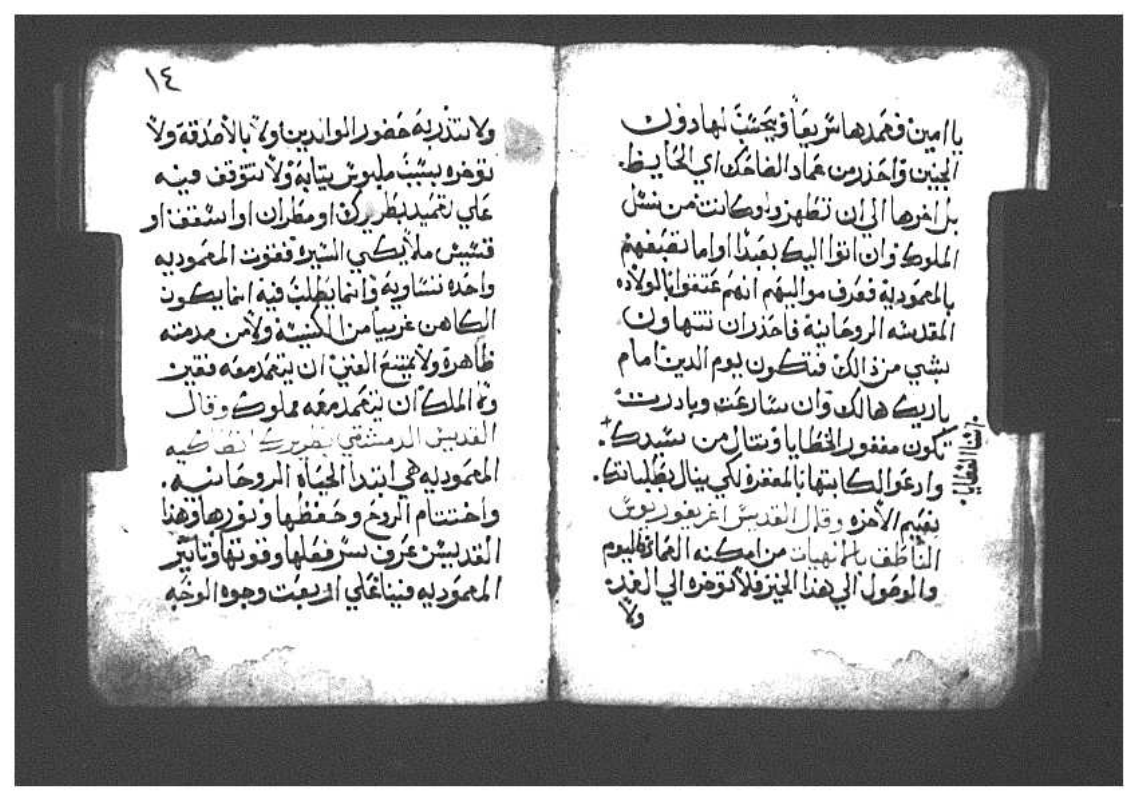 يا امين فعمدها سريعاً ويحسب لها دون
الجنين واحذر من عماد الضاحك اي الحايض
بل اخرها الي ان تطهر ولو كانت من نسل
الملوك وان اتوا اليك بعبد او اما تصبغهم
بالمعمودية فعرف مواليهم انهم عتقوا بالولاده
المقدسه الروحانية فاحذر ان تتهاون
بشي من ذالك فتكون يوم الدين امام
باريك هالك وان سارعت وبادرت
تكون مغفور الخطايا وتنال من سيدك
وادعوا لكاتبها بالمغفرة لكي ينال بطلباتك
نعيم الاخره وقال القديس اغريغوريوس
الناطق بالالهيات من امكنه العماد اليوم
والوصول الي هذا الخير فلا توخره الي الغد
ولا
١٤
ولا تنذر به حضور الوالدين ولا بالاصدقة ولا
توخره بسبب ملبوس بتابة ولا تتوقف فيه
علي تعميد بطريرك او مطران او اسقف او
قسيس ملا يكي السيرة فقوت المعموديه
واحده متساوية وانما يطلب فيه انما يكون
الكاهن غريبا من الكنيسة ولا من مدمنه
ظاهرة ولا يمتنع الغني ان يتعمد معه فقير
ولا الملك ان يتعمد معه مملوك وقال
القديس الدمشقي بطريرك انطاكيه
المعموديه هي ابتدا الحياة الروحانيه
واختتام الروح وحفظها ونورها وهذا
القديس عرف بسر فعلها وقوتها وتاثير
المعموديه فينا علي اربعت وجوه الوجه